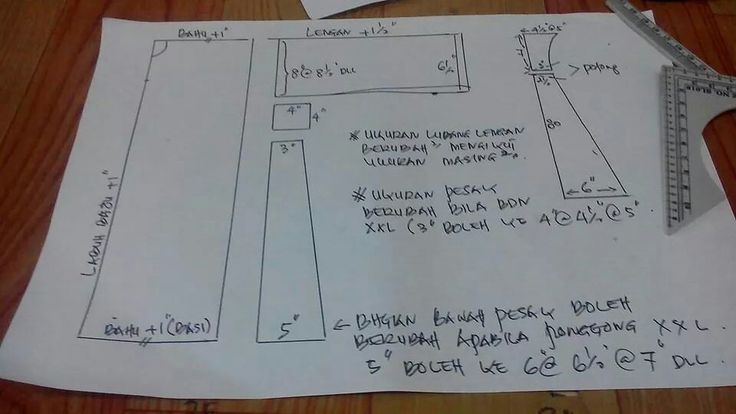 BAHU +1"
LABUH BAJU +1"
BAHU +1" (BASI)
LENGAN +1½"
8"@8½" DLL
6½"
4"
4"
3"
5"
4½"@5"
7"
3"
2½"
>potong
30
6"
* UKURAN LUBANG LENGAN
BERUBAH² MENGIKUT
UKURAN MASING²
* UKURAN PESAK
BERUBAH BILA BDN
XXL (3" BOLEH KE 4"@4½"@5"
← BHGIAN BAWAH PESAK BOLEH
BERUBAH APABILA PONGGONG XXL.
5" BOLEH KE 6"@ 6½"@ 7" DLL.